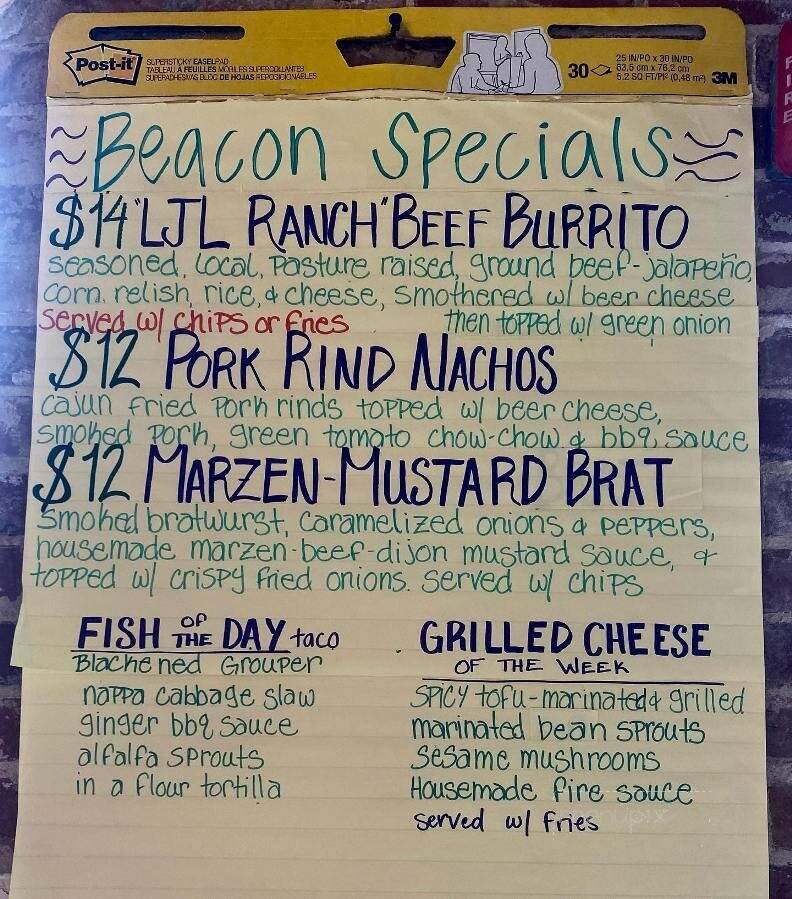 Post-it
SUPERSTICKY EASEL PAD
TABLEAU À FEUILLES MOBILES SUPERCOLLANTES
SUPERADHESIVAS BLOC DE HOJAS REPOSICIONABLES
30
25 IN/PO x 30 IN/PO
63,5 cm x 76,2 cm
5.2 SQ FT/PI² (0,48 m²)
3M
Beacon Specials
$14 "LJL RANCH" BEEF BURRITO
seasoned, local, pasture raised, ground beef-jalapeño,
corn relish, rice, & cheese, smothered w/ beer cheese
served w/ chips or fries then topped w/ green onion
$12 PORK RIND NACHOS
cajun fried pork rinds topped w/ beer cheese,
smoked pork, green tomato chow-chow & bbq sauce
$12 MARZEN-MUSTARD BRAT
smoked bratwurst, caramelized onions & peppers,
housemade marzen-beef-dijon mustard sauce, &
topped w/ crispy fried onions. served w/ chips
FISH OF THE DAY taco
Blackened Grouper
nappa cabbage slaw
ginger bbq sauce
alfalfa sprouts
in a flour tortilla
GRILLED CHEESE
OF THE WEEK
spicy tofu-marinated & grilled
marinated bean sprouts
sesame mushrooms
Housemade fire sauce
served w/ fries